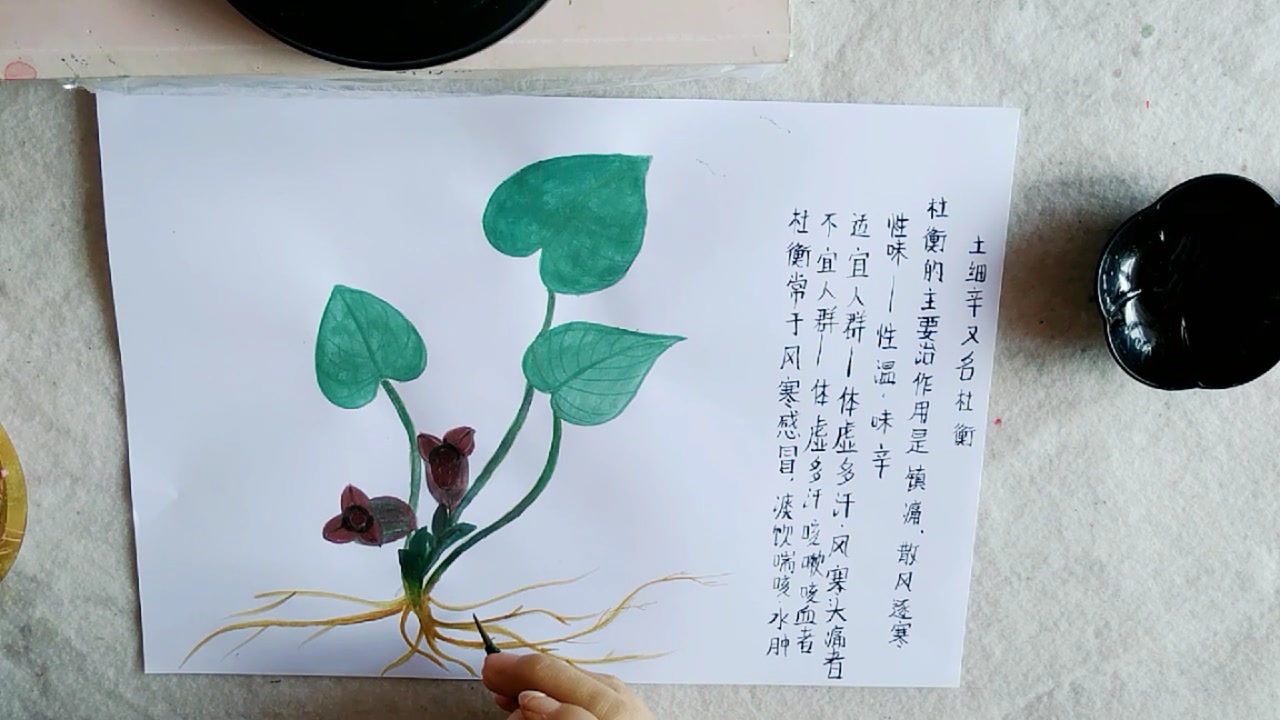 土细辛又名杜衡
杜衡的主要治作用是镇痛.散风逐寒
性味—性温.味辛
适宜人群—体虚多汗.风寒头痛者
不宜人群—体虚多汗咳嗽咳血者
杜衡常于风寒感冒.痰饮喘咳.水肿